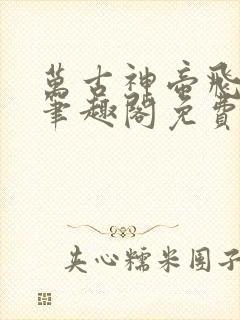 萬古神帝飛
筆趣閣免費
夹心糯米团子